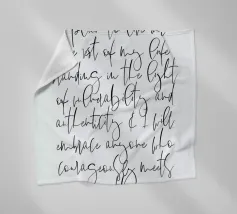 rest of my life
standing in the light
of vulnerability and
authenticity & I will
embrace anyone who
courageously meets